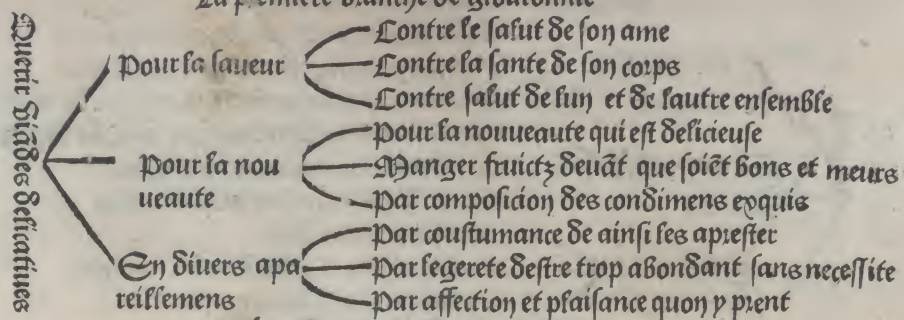 La premiere branche de gloutonnie
Querir viãdes delicatiues
Pour la saueur
Contre le salut de son ame
Contre la sante de son corps
Contre salut de lun et de lautre ensemble
Pour la nou
ueaute
Pour la nouueaute qui est delicieuse
Manger fruictz deuãt que soiẽt bons et meurs
Par composicion des condimens exquis
En diuers apa
reillemens
Par coustumance de ainsi les aprester
Par legerete destre trop abondant sans necessite
Par affection et plaisance quon y prent